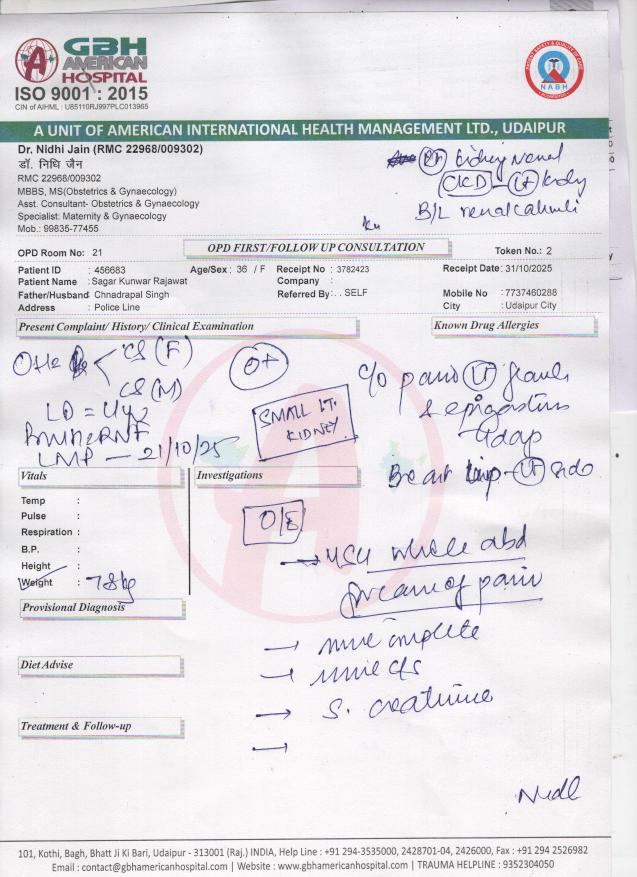 GBH
AMERICAN
HOSPITAL
ISO 9001 : 2015
CIN of AIHML : U85110RJ997PLC013965
PATIENT SAFETY & QUALITY OF CARE
NABH
A UNIT OF AMERICAN INTERNATIONAL HEALTH MANAGEMENT LTD., UDAIPUR
Dr. Nidhi Jain (RMC 22968/009302)
डॉ. निधि जैन
RMC 22968/009302
MBBS, MS(Obstetrics & Gynaecology)
Asst. Consultant- Obstetrics & Gynaecology
Specialist: Maternity & Gynaecology
Mob.: 99835-77455
kidney
CKD - Lt kidny
B/L renal calculi
OPD Room No: 21
OPD FIRST/FOLLOW UP CONSULTATION
Token No.: 2
Patient ID : 456683 Age/Sex : 36 / F Receipt No : 3782423 Receipt Date: 31/10/2025
Patient Name : Sagar Kunwar Rajawat Company :
Father/Husband : Chnadrapal Singh Referred By: . . SELF Mobile No : 7737460288
Address : Police Line City : Udaipur City
Present Complaint/ History/ Clinical Examination
Known Drug Allergies
CS (F)
CS (M)
O+
c/o pain Lt
& epigastric
LD = 4yr
SMALL LT.
KIDNEY
LMP - 21/10/25
Breast - Lt side
Vitals
Investigations
Temp :
Pulse :
Respiration :
B.P. :
Height :
Weight : 78kg
O/E
→ USG whole abd
In case of pain
→ urine complete
→ urine c/s
→ S. creatinine
→
Provisional Diagnosis
Diet Advise
Treatment & Follow-up
Nidhi
101, Kothi, Bagh, Bhatt Ji Ki Bari, Udaipur - 313001 (Raj.) INDIA, Help Line : +91 294-3535000, 2428701-04, 2426000, Fax : +91 294 2526982
Email : contact@gbhamericanhospital.com | Website : www.gbhamericanhospital.com | TRAUMA HELPLINE : 9352304050